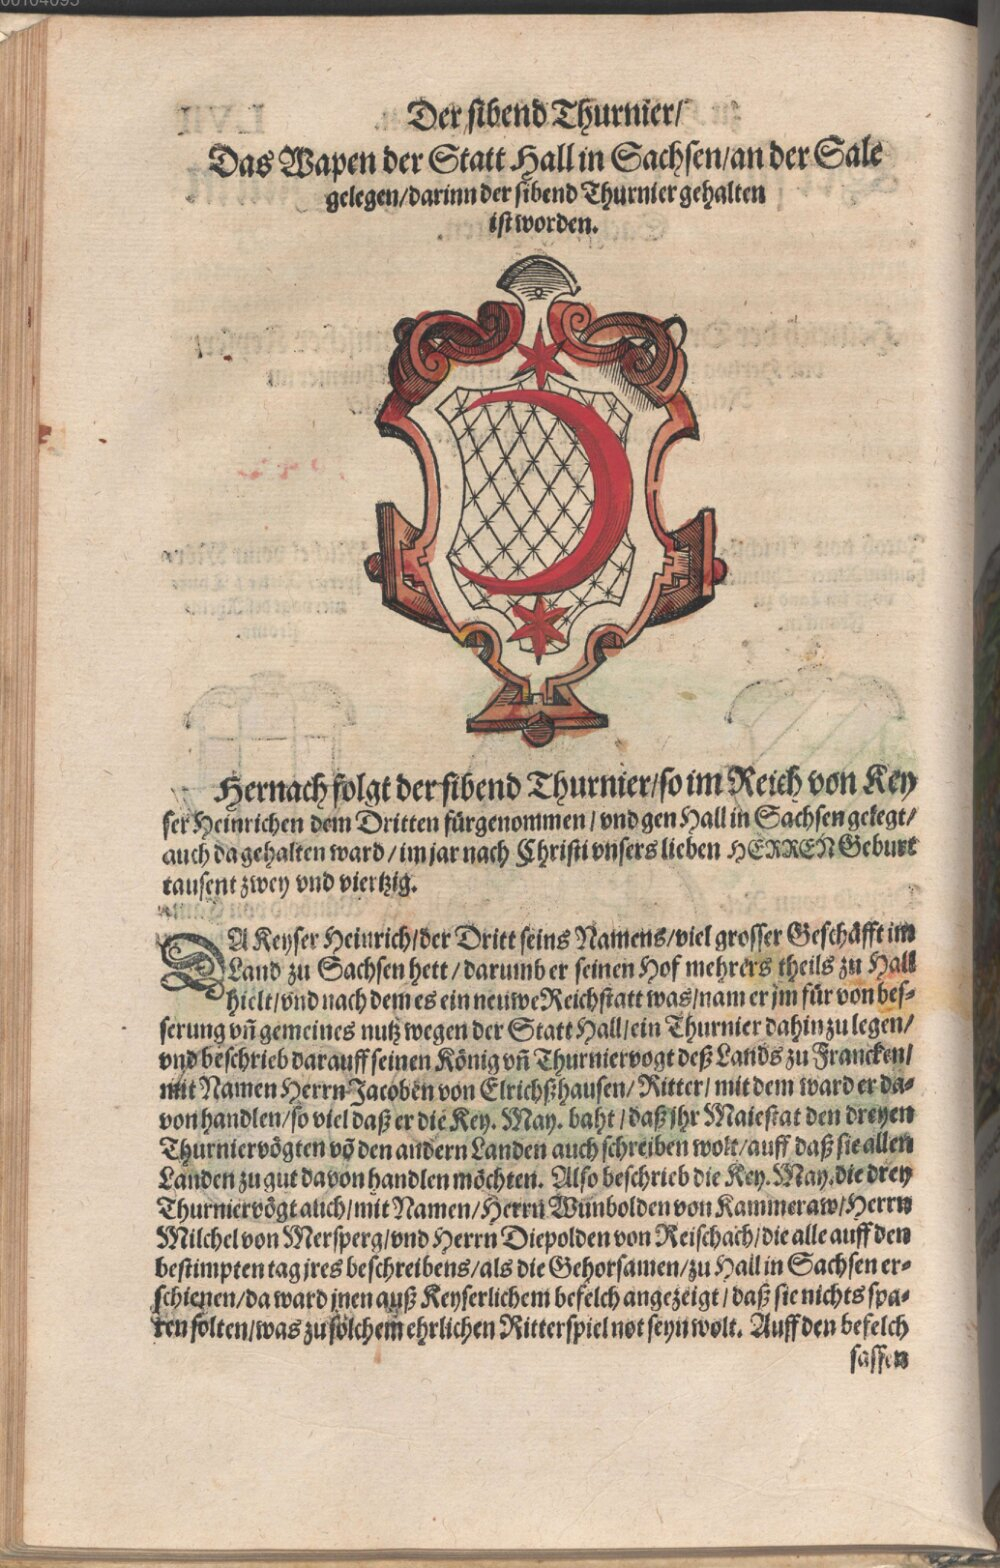 Der sibend Thurnier/
Das Wapen der Statt Hall in Sachsen/an der Sale
gelegen/darinn der sibend Thurnier gehalten
ist worden.
Hernach folgt der sibend Thurnier/so im Reich von Key
ser Heinrichen dem Dritten fürgenommen/vnd gen Hall in Sachsen gelegt/
auch da gehalten ward/im jar nach Christi vnsers lieben HERREN Geburt
tausent zwey vnd viertzig.
DA Keyser Heinrich/der Dritt seins Namens/viel grosser Geschäfft im
Land zu Sachsen hett/darumb er seinen Hof mehrers theils zu Hall
hielt/vnd nach dem es ein neuwe Reichstatt was/nam er jm für von bes-
serung vñ gemeines nutz wegen der Statt Hall/ein Thurnier dahin zu legen/
vnd beschrieb darauff seinen König vñ Thurniervogt deß Lands zu Francken/
mit Namen Herrn Jacoben von Elrichßhausen/Ritter/mit dem ward er da-
von handlen/so viel daß er die Key. May. baht/daß jhr Maiestat den dreyen
Thurniervögten võ den andern Landen auch schreiben wolt/auff daß sie allen
Landen zu gut davon handlen möchten. Also beschrieb die Key. May. die drey
Thurniervögt auch/mit Namen/Herrn Wunbolden von Kammeraw/Herrn
Milchel von Mersperg/vnd Herrn Diepolden von Reischach/die alle auff den
bestimpten tag jres beschreibens/als die Gehorsamen/zu Hall in Sachsen er-
schienen/da ward jnen auß Keyserlichem befelch angezeigt/daß sie nichts spa-
ren solten/was zu solchem ehrlichen Ritterspiel not seyn wolt. Auff den befelch
sassen